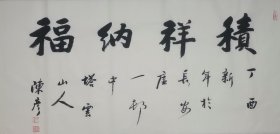 積祥納福
丁酉
新
年於
長安
一邨
中
塔雲
山人
陳彦